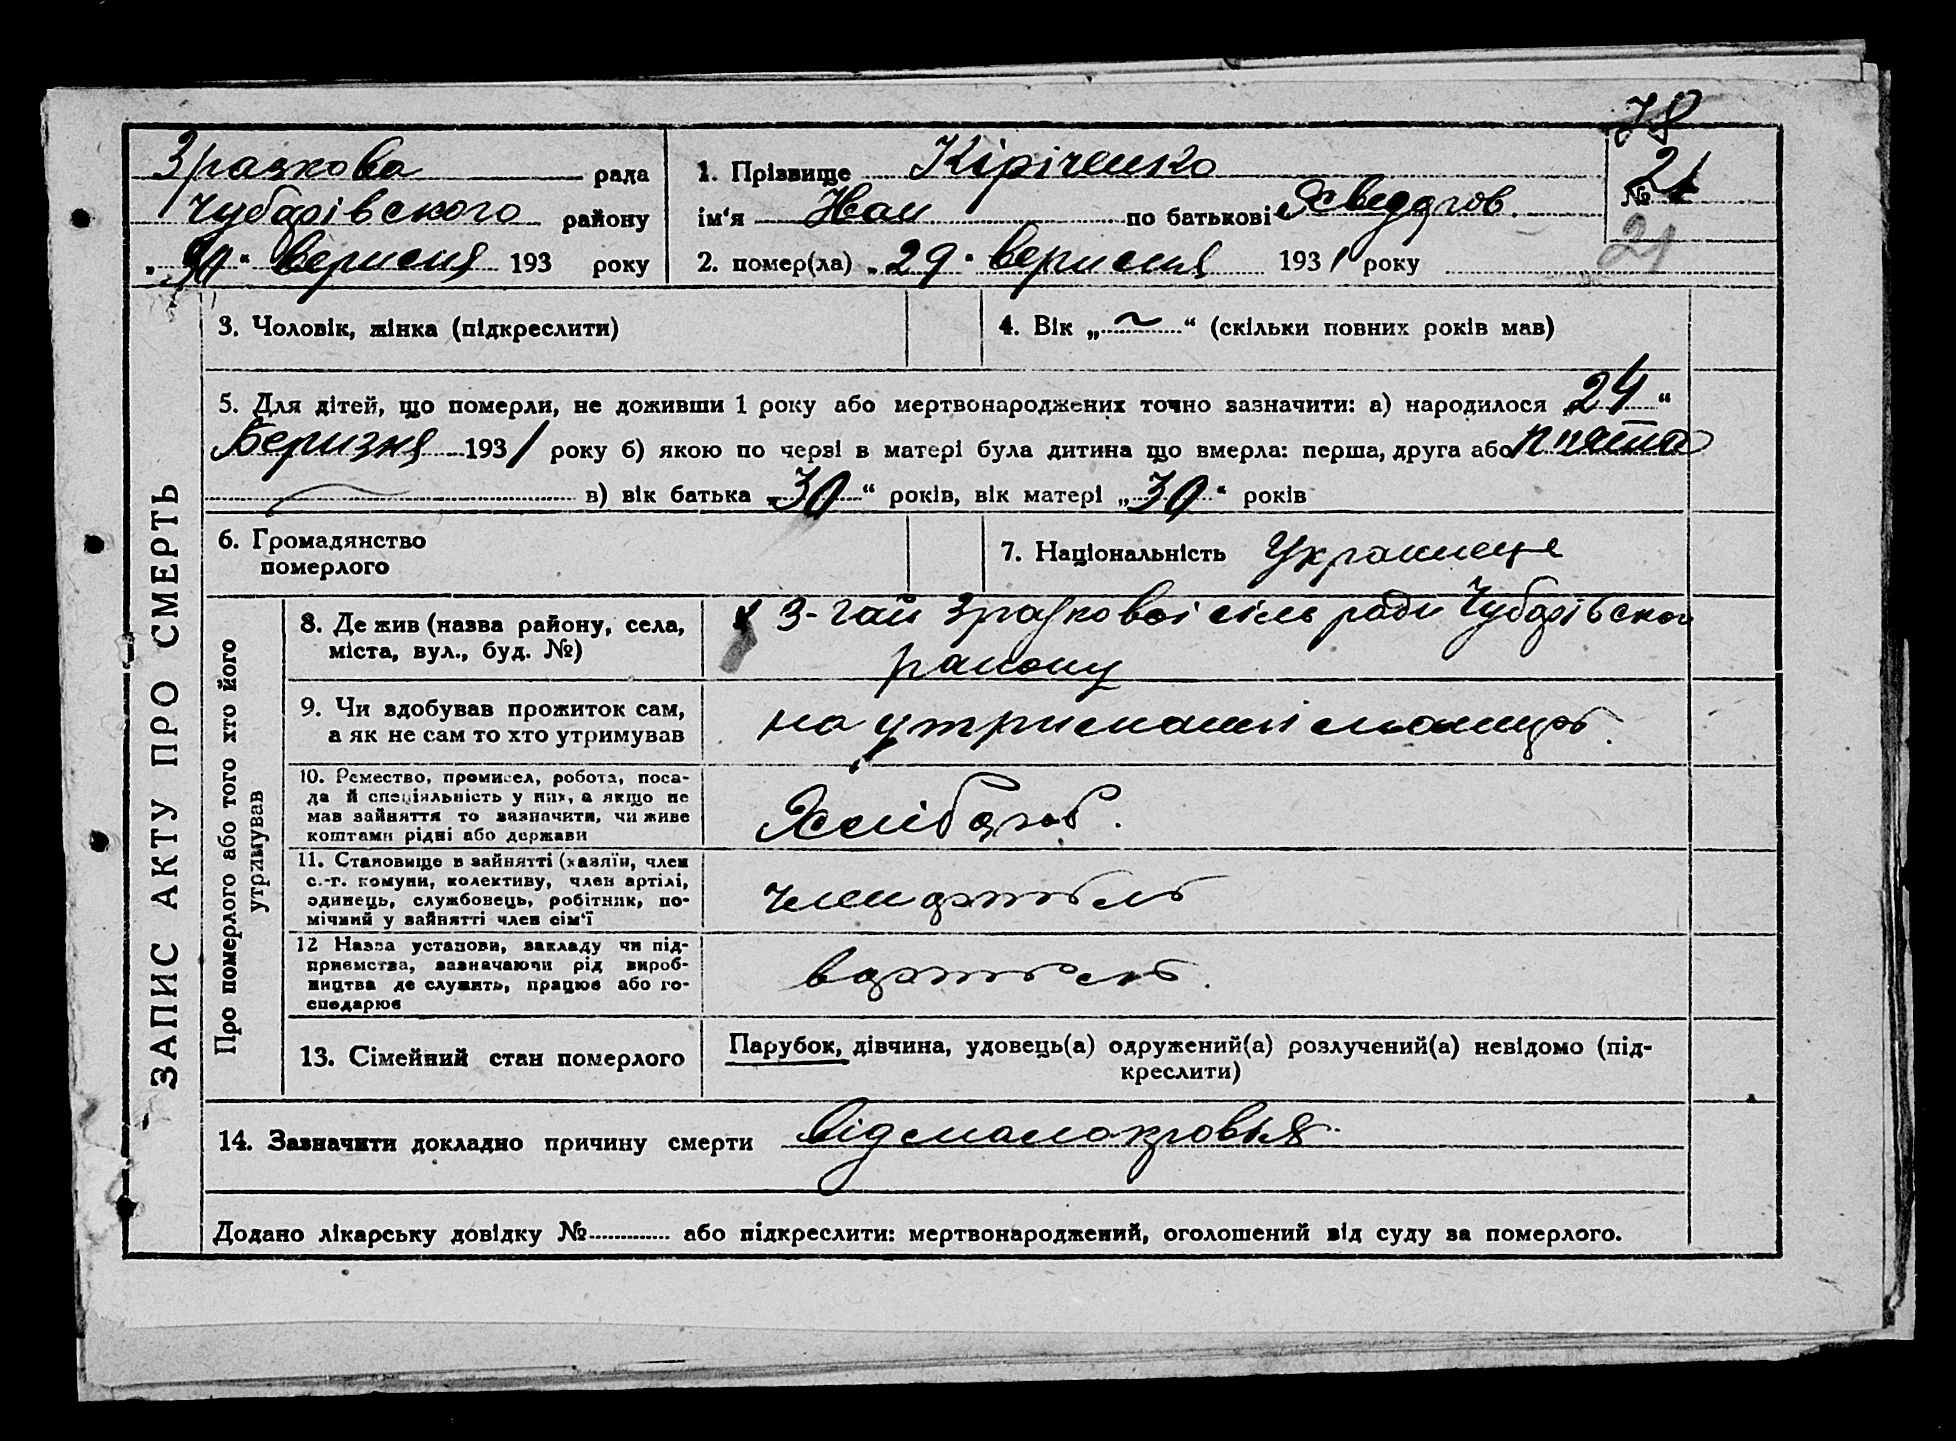 78
Зразкова рада
Чубарівського району
„30“ вересня 193 року
1. Прізвище Кіріченко
ім‘я Иван по батькові
№ 21
21
2. помер(ла) „29“ вересня 1931 року
3. Чоловік, жінка (підкреслити)
4. Вік „~“ (скільки повних років мав)
5. Для дітей, що померли, не доживши 1 року або мертвонароджених точно зазначити: а) народилося „24“
Березня 1931 року б) якою по черзі в матері була дитина що вмерла: перша, друга або пята
в) вік батька „30“ років, вік матері „30“ років
6. Громадянство
померлого
7. Національність Украинец
ЗАПИС АКТУ ПРО СМЕРТЬ
Про померлого або того хто його
утримував
8. Де жив (назва району, села,
міста, вул., буд. №)
З-гай Зразковоі сіль ради Чубарівского
району
9. Чи здобував прожиток сам,
а як не сам то хто утримував
на утриманні
10. Ремество, промисел, робота, поса-
да й спеціяльність у них, а якщо не
мав зайняття то зазначити, чи живе
коштами рідні або держави
Хлібороб.
11. Становище в зайнятті (хазяїн, член
с.-г. комуни, колективу, член артілі,
одинець, службовець, робітник, по-
мічний у зайнятті член сім‘ї
член артель
12 Назва установи, закладу чи під-
приємства, зазначаючи рід вироб-
ництва де служить, працює або го-
сподарює
в артель.
13. Сімейний стан померлого
Парубок, дівчина, удовець(а) одружений(а) розлучений(а) невідомо (під-
креслити)
14. Зазначити докладно причину смерти від малокровья
Додано лікарську довідку № або підкреслити: мертвонароджений, оголошений від суду за померлого.